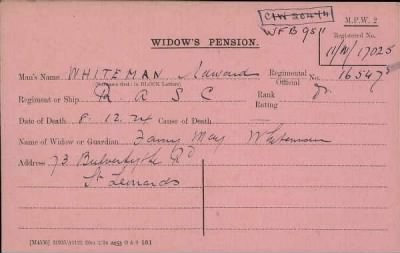 C/W 2641/4 M.P.W. 2
WFB 951
Registered No.
WIDOW'S PENSION.
11/W/17025
Man's Name WHITEMAN Edward Regimental No. 16547
(Surname first in BLOCK Letters) Official
Regiment or Ship R A S C Rank Dr.
Rating
Date of Death 8.12.24 Cause of Death
Name of Widow or Guardian Fanny May Whiteman
Address 73 Bulverhythe Rd
St Leonards